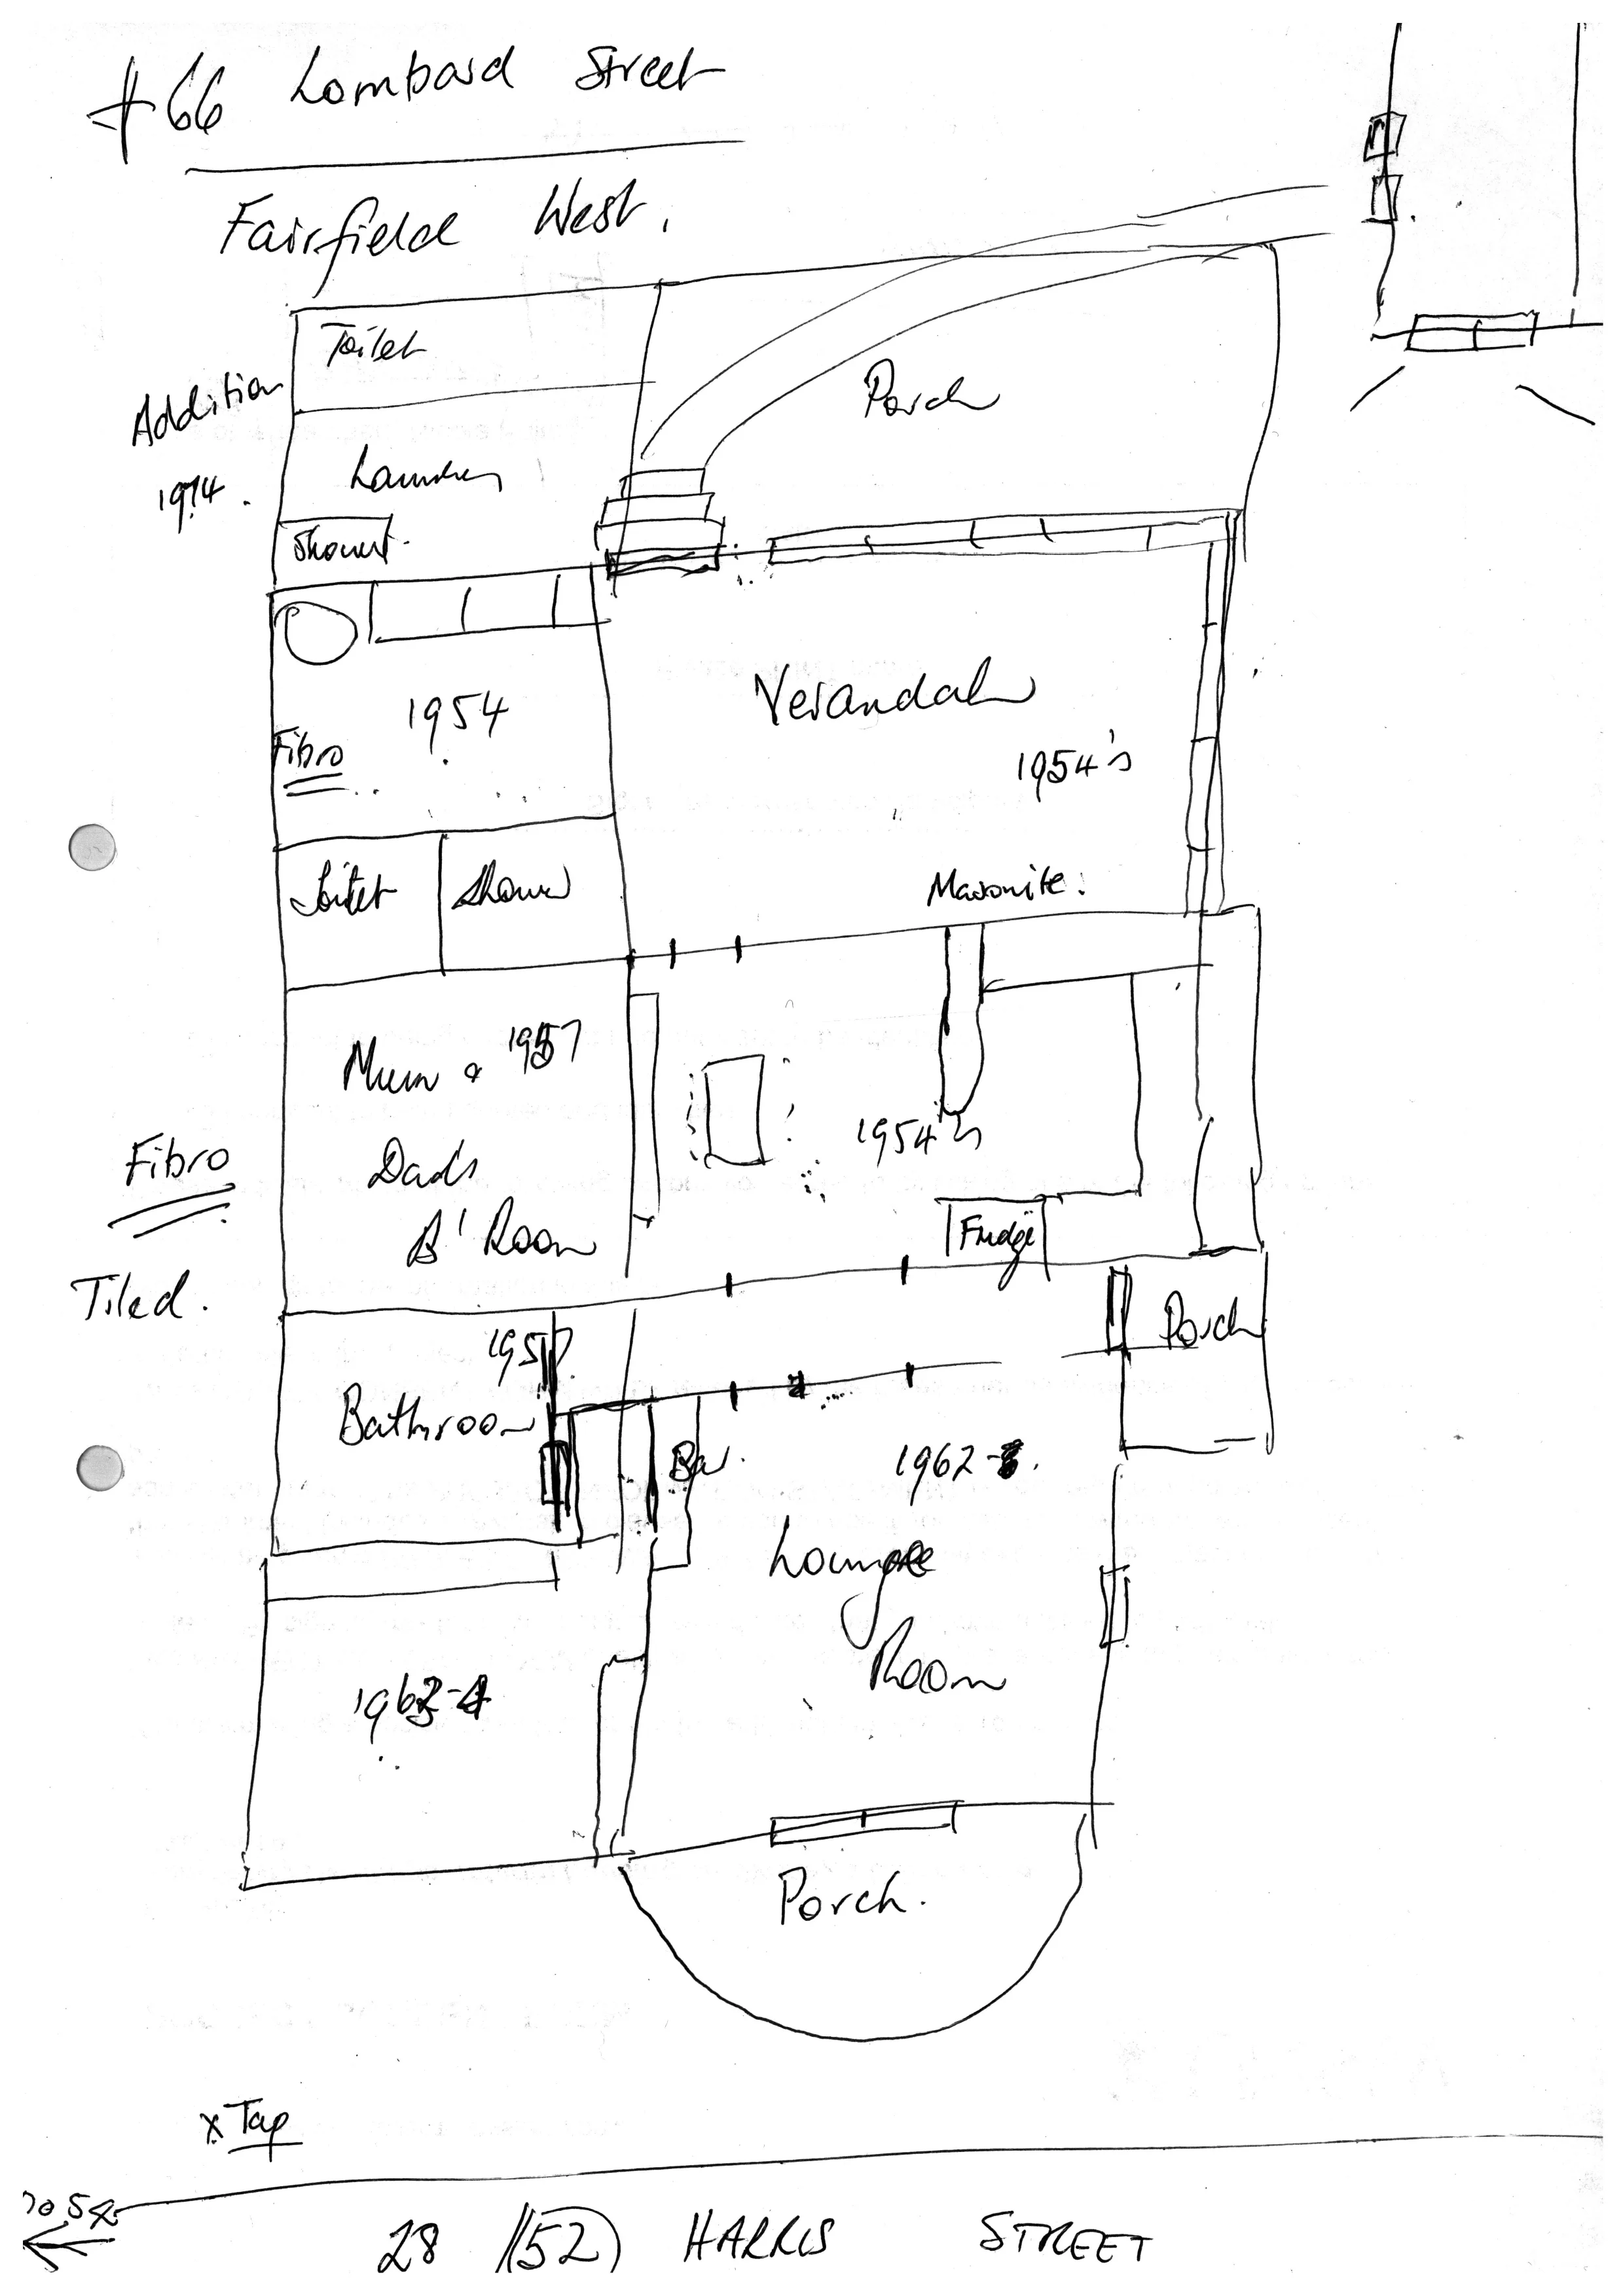 #66 Lombard Street
Fairfield West.
Toilet
Addition
1974.
Porch
Laundry
Shower.
1954
Fibro
Verandah
1954's
Masonite.
Toilet
Shower
Mum & 1957
Dad's
B'Room
1954's
Fibro
Tiled.
Fridge
Porch
1957
Bathroom
Bar.
1962-3.
Lounge
Room
1963-4
Porch.
x Tap
28 (52) HARRIS STREET